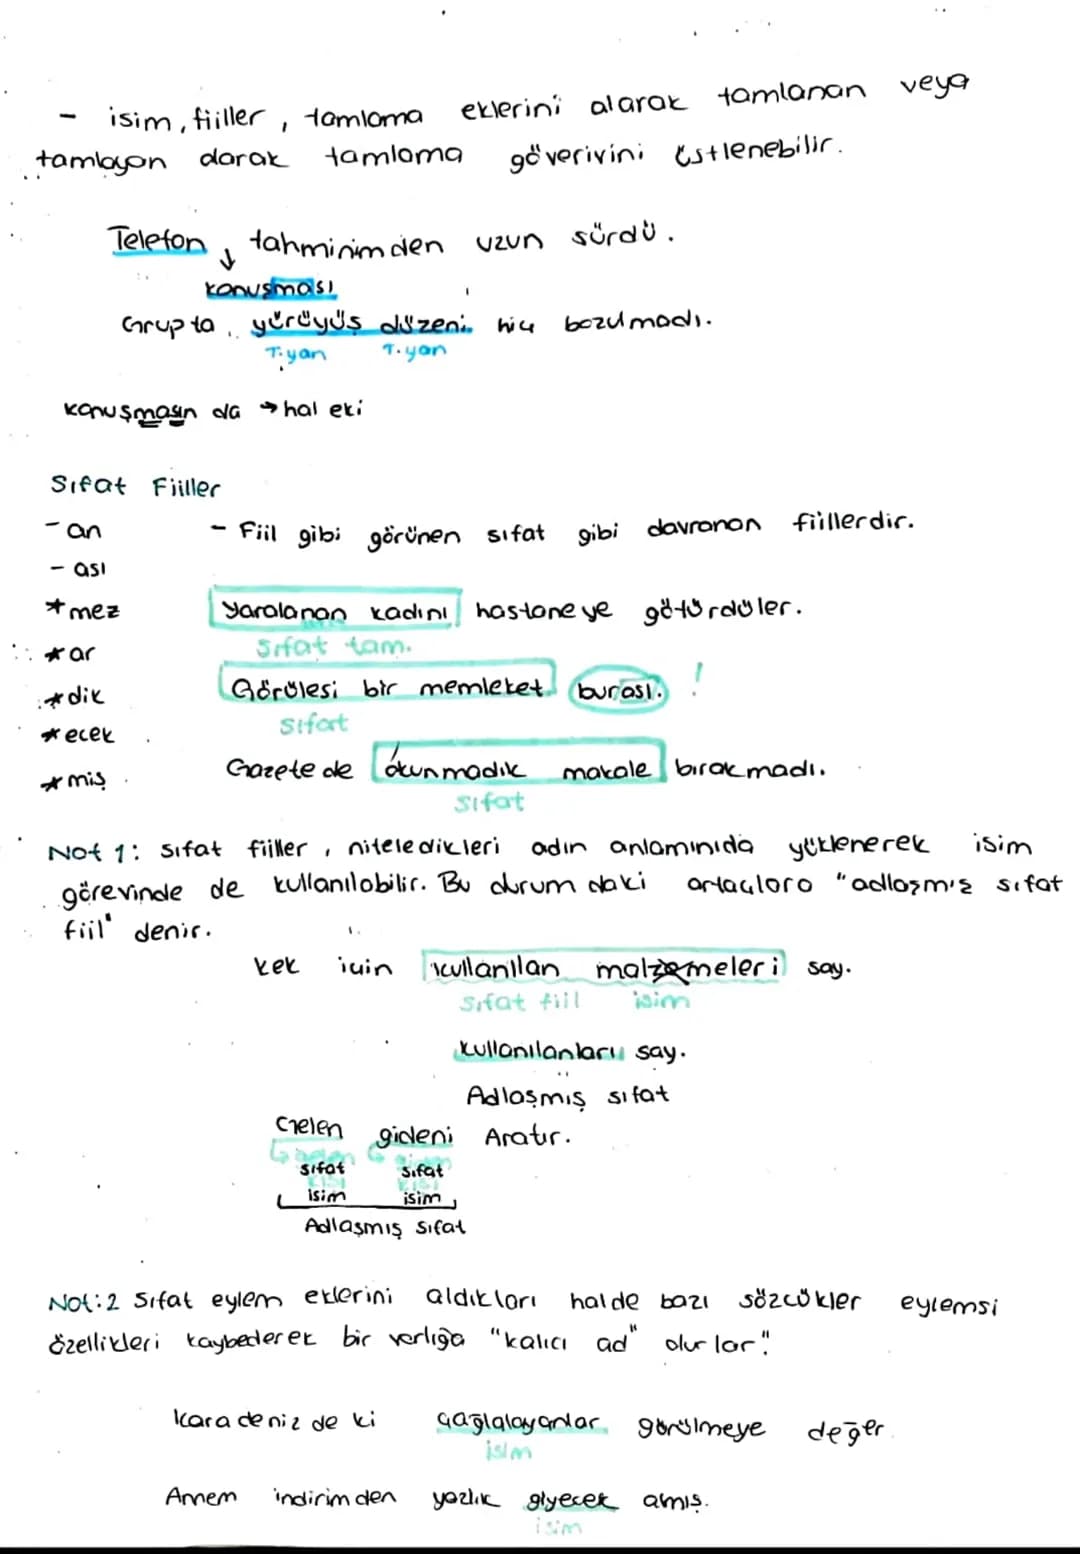 - isim, fiiller, tamlama eklerini alarak tamlanan veya
tamlayan olarak tamlama göverivini üstlenebilir.
Telefon ↓ tahminimden uzun sürdü.
konuşması
Grupta yürüyüş düzeni hiç bozulmadı.
T.yan T.yan
konuşmasın da → hal eki
Sıfat Fiiller
-an - Fiil gibi görünen sıfat gibi davranan fiillerdir.
- ası
*mez Yaralanan kadını hastaneye götürdüler.
*ar Sıfat tam.
*dik Görülesi bir memleket burası. !
*ecek sıfat
*miş Gazetede okunmadık makale bırakmadı.
sıfat
Not 1: sıfat fiiller, niteledikleri adın anlamınıda yüklenerek isim
görevinde de kullanılabilir. Bu durumdaki ortaçlara "adlaşmış sıfat
fiil" denir.
kek için kullanılan malzemeleri say.
sıfat fiil isim
kullanılanları say.
Adlaşmış sıfat
Gelen gideni Aratır.
sıfat sıfat
kişi kişi
isim isim
Adlaşmış sıfat
Not:2 Sıfat eylem eklerini aldıkları halde bazı sözcükler eylemsi
özellikleri kaybederek bir varlığa "kalıcı ad" olurlar."
Karadeniz de ki çağlalayanlar görülmeye değer.
isim
Annem indirimden yazlık giyecek almış.
isim